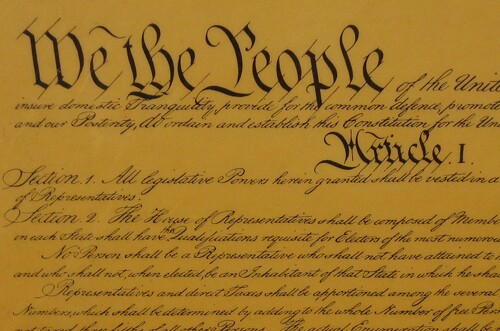 We the People of the Unite
insure domestic Tranquility, provide for the common defence, promo
and our Posterity, do ordain and establish this Constitution for the Uni
Article. I.
Section. 1. All legislative Powers herein granted shall be vested in a
of Representatives.
Section. 2. The House of Representatives shall be composed of Membe
in each State shall have the Qualifications requisite for Electors of the most numerou
No Person shall be a Representative who shall not have attained to t
and who shall not, when elected, be an Inhabitant of that State in which he sha
Representatives and direct Taxes shall be apportioned among the several
Numbers, which shall be determined by adding to the whole Number of free Pers
not taxed, three fifths of all other Persons. The actual Enumeration shall b